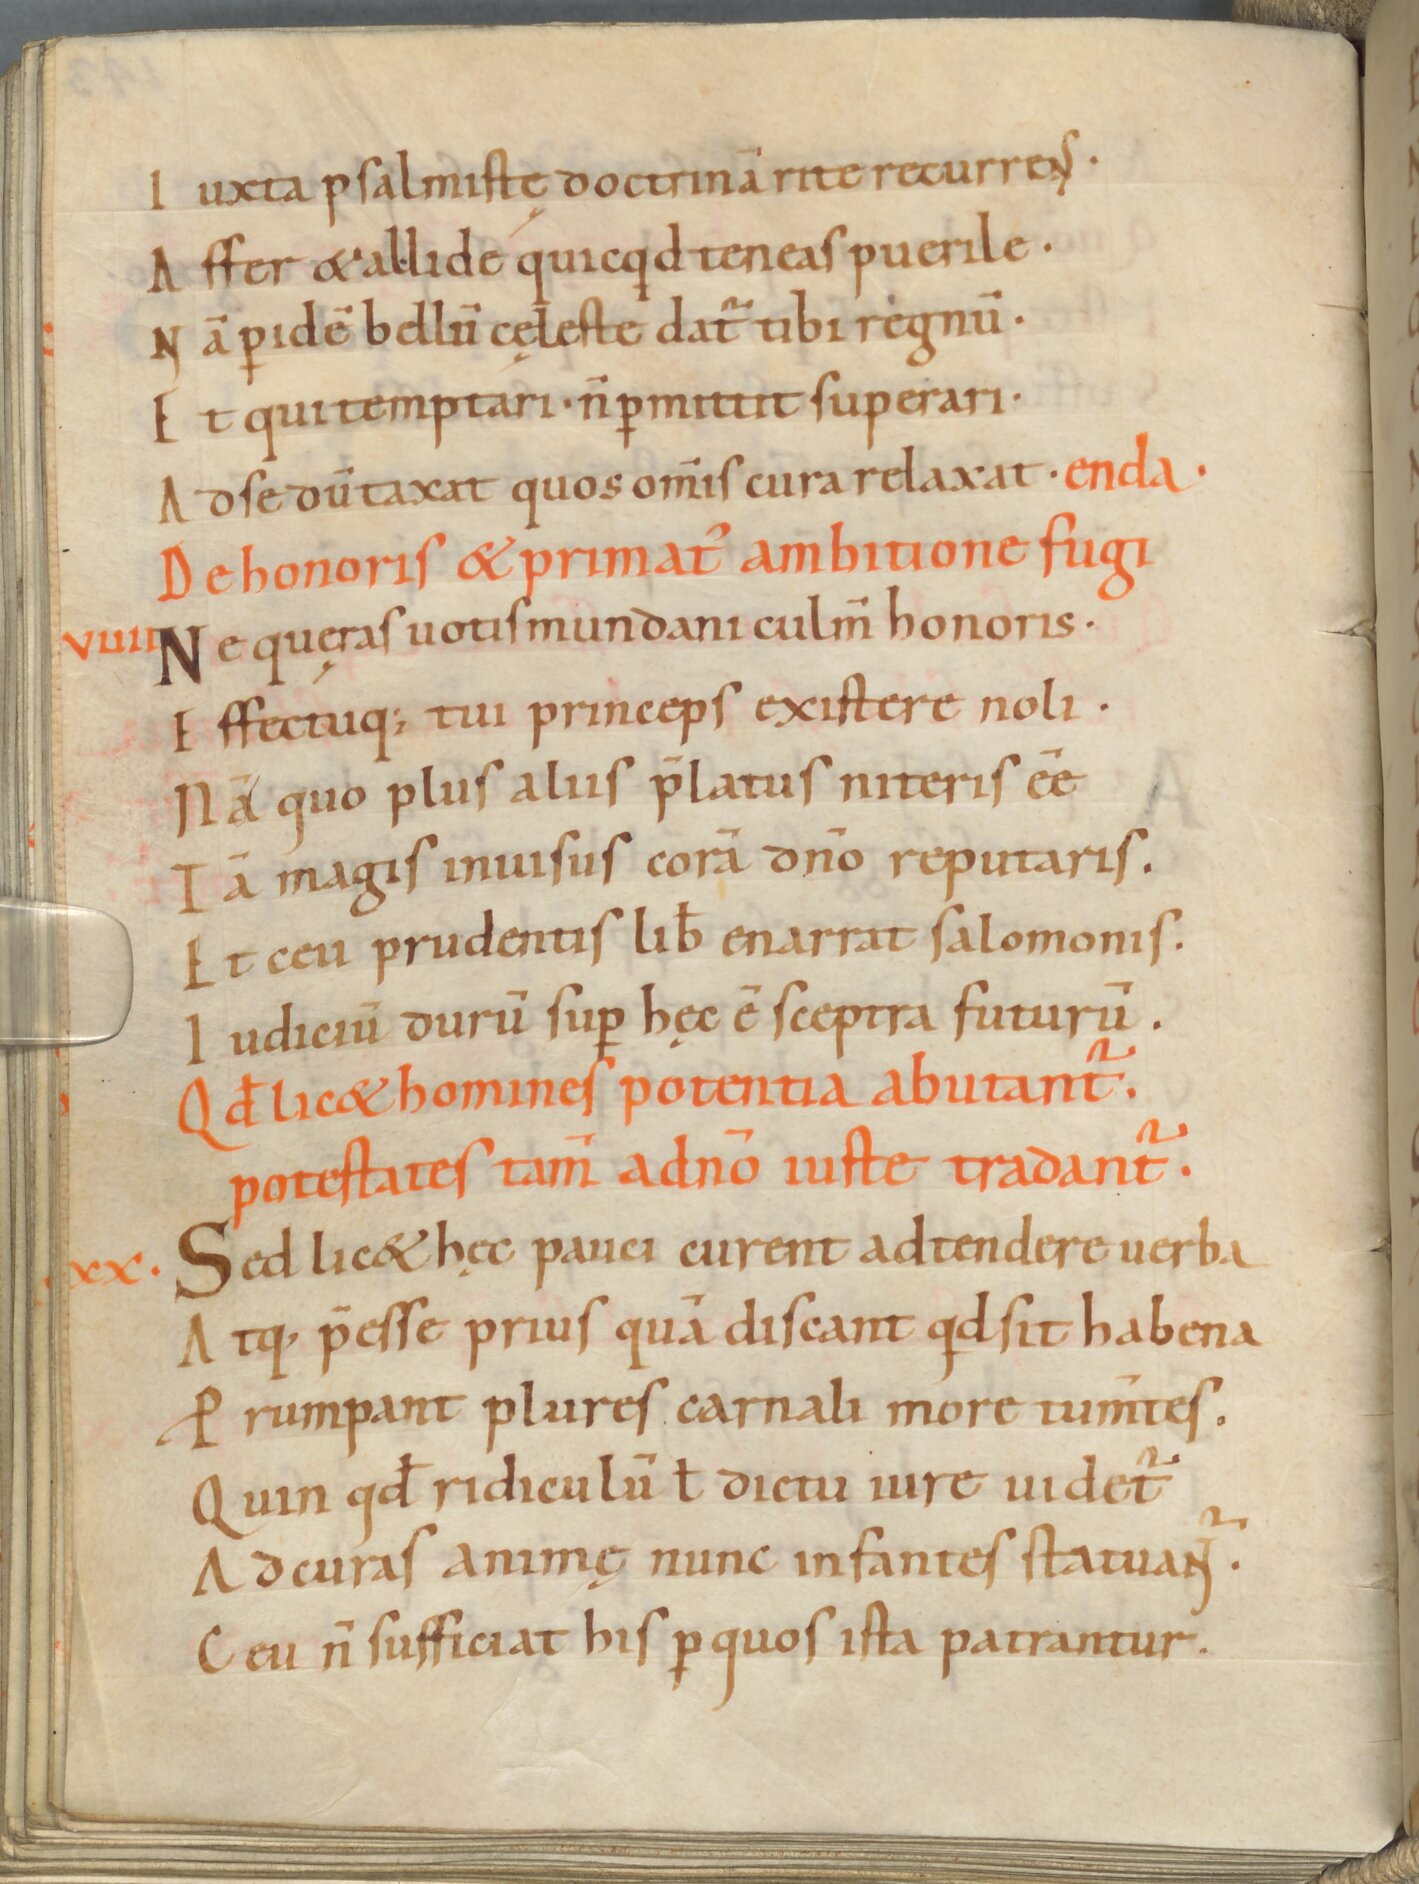 I uxta psalmistę doctrinā rite recurrens·
A ffer & allide quicqd teneas puerile·
N ā ꝑ idē bellū cęleste dat᷑ tibi regnū·
E t qui temptari· n̄ ꝑmittit superari·
A d se dūtaxat quos om̄is cura relaxat· enda·
D e honoris & primat᾿ ambitione fugi
VIIII N e quęras uotis mundani culm̄ honoris·
E ffectuq; tui princeps existere noli·
N ā quo plus aliis p̄latus niteris eē̄
T ā magis inuisus corā dn̄o reputaris.
E t ceu prudentis lib̄ enarrat salomonis.
I udiciū durū suꝑ hęc ē sceptra futurū.
Qđ lic& homines potentia abutant᷑.
potestates tam̄ a dn̄o iuste tradant᷑.
xx· Sed lic& hęc pauci curent adtendere uerba
A tq; p̄esse prius quā discant qđ sit habena
P rumpant plures carnali more tum̄tes.
Q uin qđ ridiculū ł dictu iure uidet᷑
A d curas animę nunc infantes statuant᷑.
C eu n̄ sufficiat his ꝑ quos ista patrantur.